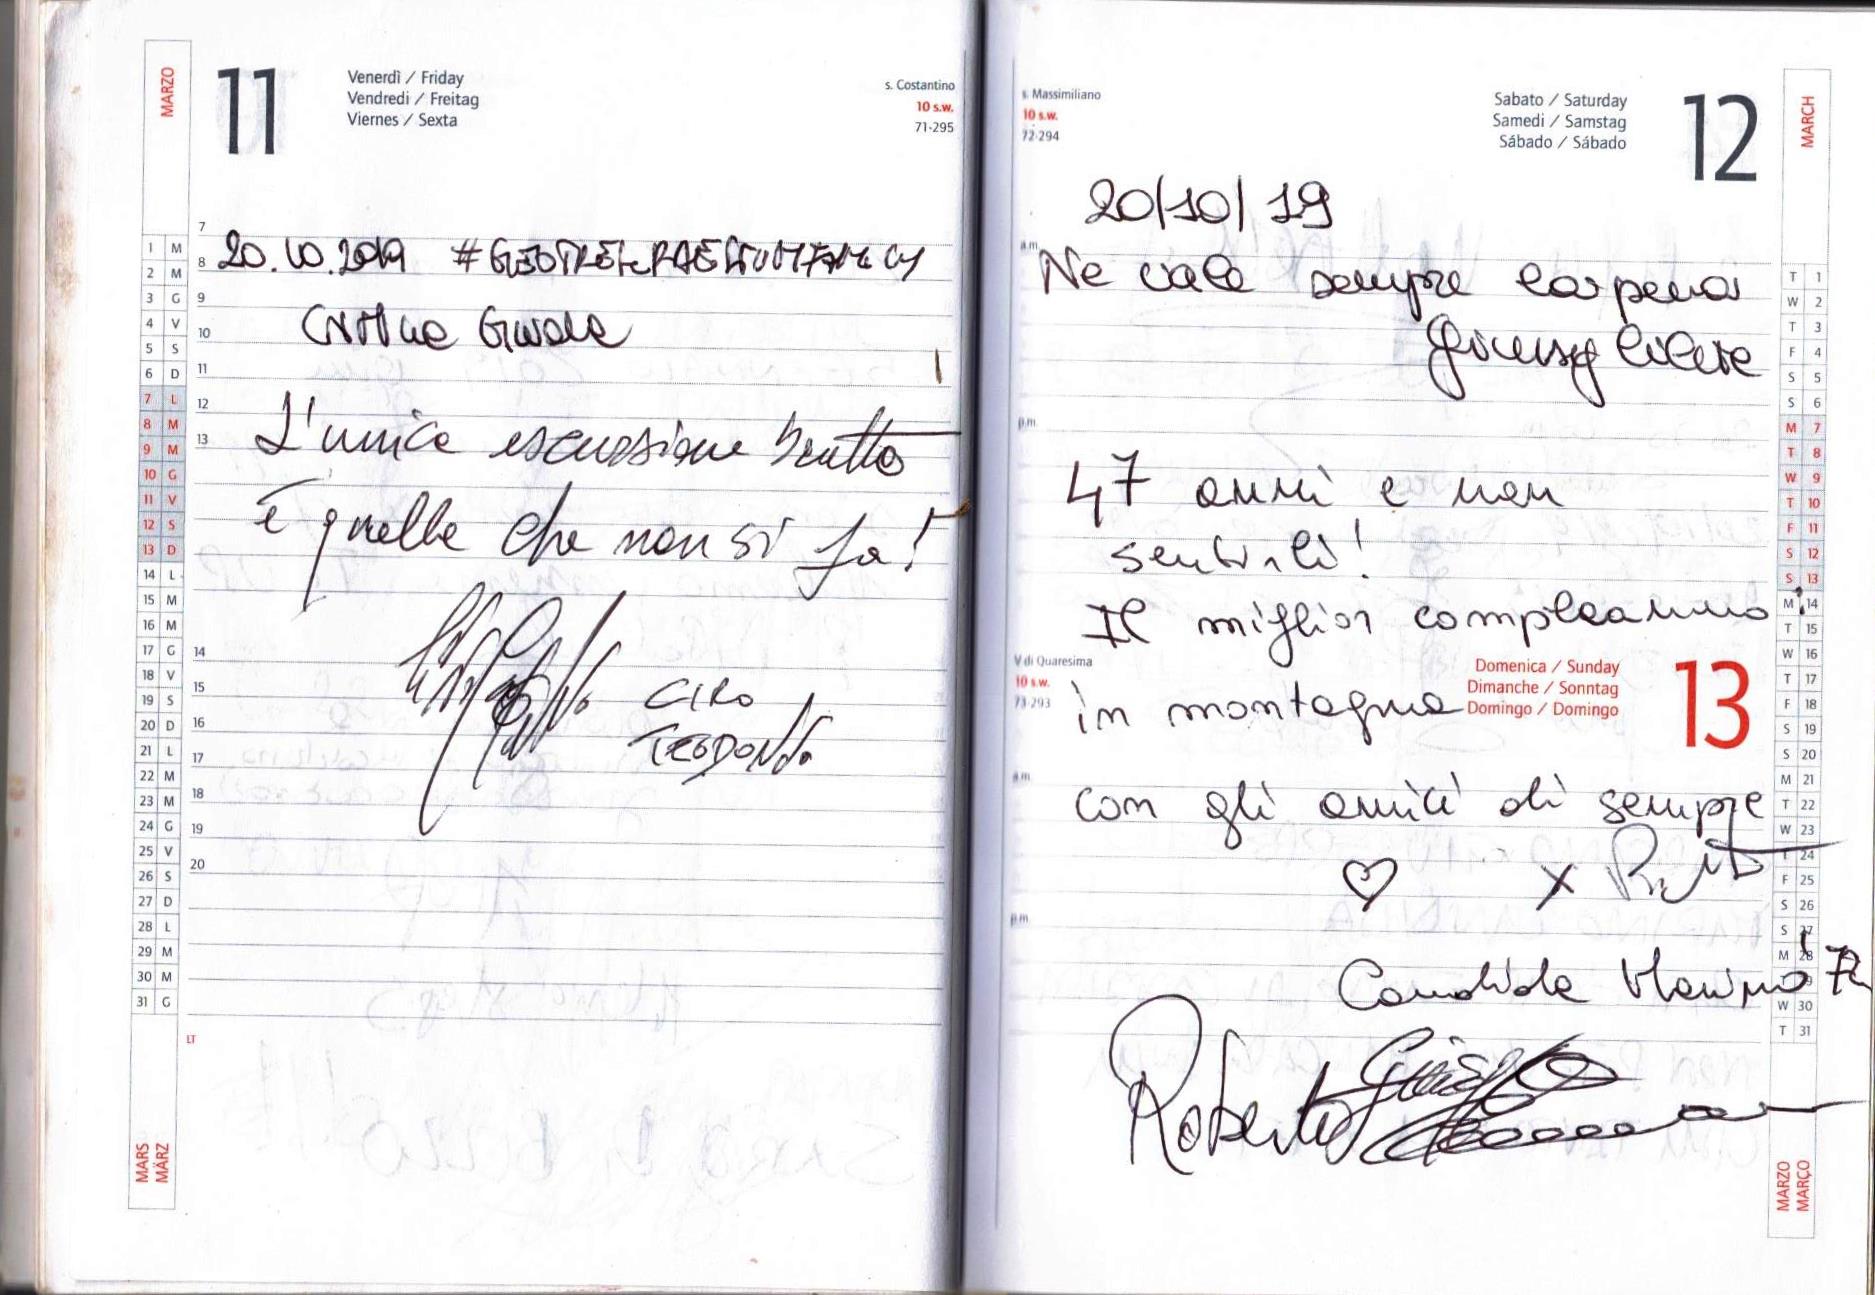 MARZO
11
Venerdì / Friday
Vendredi / Freitag
Viernes / Sexta
s. Costantino
10 s.w.
71-295
7
8
9
10
11
12
13
14
15
16
17
18
19
20
20.10.2019
L'unica escursione brutta
È quella che non si fa!
CIRO
TEODONNO
1 M
2 M
3 G
4 V
5 S
6 D
7 L
8 M
9 M
10 G
11 V
12 S
13 D
14 L
15 M
16 M
17 G
18 V
19 S
20 D
21 L
22 M
23 M
24 G
25 V
26 S
27 D
28 L
29 M
30 M
31 G
LT
MARS
MÄRZ
s. Massimiliano
10 s.w.
72-294
Sabato / Saturday
Samedi / Samstag
Sábado / Sábado
12
MARCH
20/10/19
a.m.
Ne vale sempre la pena
p.m.
47 anni e non
sentirli!
Il miglior compleanno
in montagna
con gli amici di sempre
V di Quaresima
10 s.w.
73-293
Domenica / Sunday
Dimanche / Sonntag
Domingo / Domingo
13
a.m.
p.m.
Candida
Roberto
T 1
W 2
T 3
F 4
S 5
S 6
M 7
T 8
W 9
T 10
F 11
S 12
S 13
M 14
T 15
W 16
T 17
F 18
S 19
S 20
M 21
T 22
W 23
T 24
F 25
S 26
S 27
M 28
W 30
T 31
MARZO
MARÇO